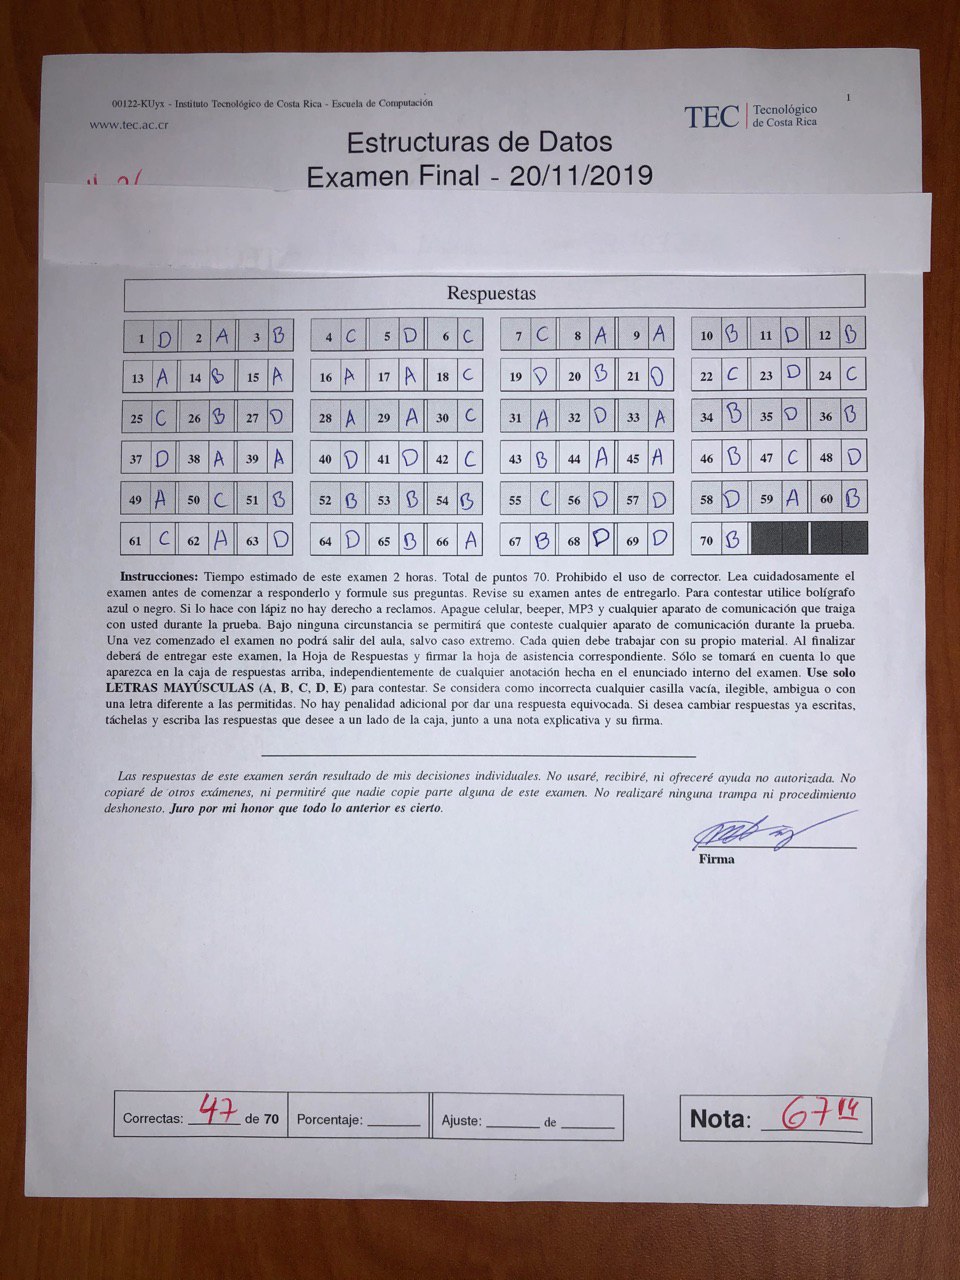 1
00122-KUyx - Instituto Tecnológico de Costa Rica - Escuela de Computación
www.tec.ac.cr
TEC | Tecnológico
de Costa Rica
Estructuras de Datos
Examen Final - 20/11/2019
Respuestas
1 D 2 A 3 B 4 C 5 D 6 C 7 C 8 A 9 A 10 B 11 D 12 B
13 A 14 B 15 A 16 A 17 A 18 C 19 D 20 B 21 D 22 C 23 D 24 C
25 C 26 B 27 D 28 A 29 A 30 C 31 A 32 D 33 A 34 B 35 D 36 B
37 D 38 A 39 A 40 D 41 D 42 C 43 B 44 A 45 A 46 B 47 C 48 D
49 A 50 C 51 B 52 B 53 B 54 B 55 C 56 D 57 D 58 D 59 A 60 B
61 C 62 A 63 D 64 D 65 B 66 A 67 B 68 D 69 D 70 B
Instrucciones: Tiempo estimado de este examen 2 horas. Total de puntos 70. Prohibido el uso de corrector. Lea cuidadosamente el
examen antes de comenzar a responderlo y formule sus preguntas. Revise su examen antes de entregarlo. Para contestar utilice bolígrafo
azul o negro. Si lo hace con lápiz no hay derecho a reclamos. Apague celular, beeper, MP3 y cualquier aparato de comunicación que traiga
con usted durante la prueba. Bajo ninguna circunstancia se permitirá que conteste cualquier aparato de comunicación durante la prueba.
Una vez comenzado el examen no podrá salir del aula, salvo caso extremo. Cada quien debe trabajar con su propio material. Al finalizar
deberá de entregar este examen, la Hoja de Respuestas y firmar la hoja de asistencia correspondiente. Sólo se tomará en cuenta lo que
aparezca en la caja de respuestas arriba, independientemente de cualquier anotación hecha en el enunciado interno del examen. Use solo
LETRAS MAYÚSCULAS (A, B, C, D, E) para contestar. Se considera como incorrecta cualquier casilla vacía, ilegible, ambigua o con
una letra diferente a las permitidas. No hay penalidad adicional por dar una respuesta equivocada. Si desea cambiar respuestas ya escritas,
táchelas y escriba las respuestas que desee a un lado de la caja, junto a una nota explicativa y su firma.
Las respuestas de este examen serán resultado de mis decisiones individuales. No usaré, recibiré, ni ofreceré ayuda no autorizada. No
copiaré de otros exámenes, ni permitiré que nadie copie parte alguna de este examen. No realizaré ninguna trampa ni procedimiento
deshonesto. Juro por mi honor que todo lo anterior es cierto.
Firma
Correctas: 47 de 70 Porcentaje: ______ Ajuste: ______ de ______ Nota: 67 14